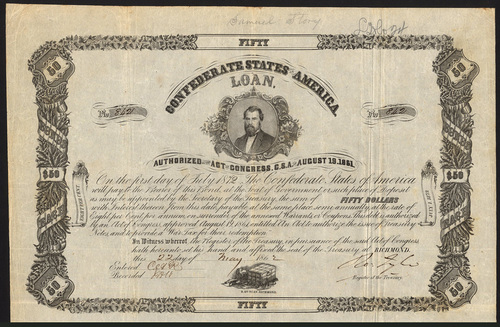 Samuel Story
FIFTY
CONFEDERATE STATES OF AMERICA
LOAN.
50
50
No.
No.
AUTHORIZED BY THE ACT OF CONGRESS, C.S.A. OF AUGUST 19, 1861.
On the first day of July 1872 The Confederate States of America
will pay to the Bearer of this Bond, at the Seat of Government or such place of Deposit
as may be approved by the Secretary of the Treasury, the sum of FIFTY DOLLARS
with Interest thereon from this date, payable at the same place, semi annually at the rate of
Eight per Cent per annum, on surrender of the annexed Warrants or Coupons. This debt is authorized
by an Act of Congress, approved August 19, 1861, entitled An Act to authorize the issue of Treasury
Notes, and to provide a War Tax for their redemption.
$50
$50
EIGHT PER CENT
JULY 1 1872
In Witness whereof, the Register of the Treasury, in pursuance of the said Act of Congress
hath hereunto set his hand, and affixed the seal of the Treasury at RICHMOND.
this 22 day of May 1862
Entered
Recorded
Register of the Treasury
50
50
FIFTY